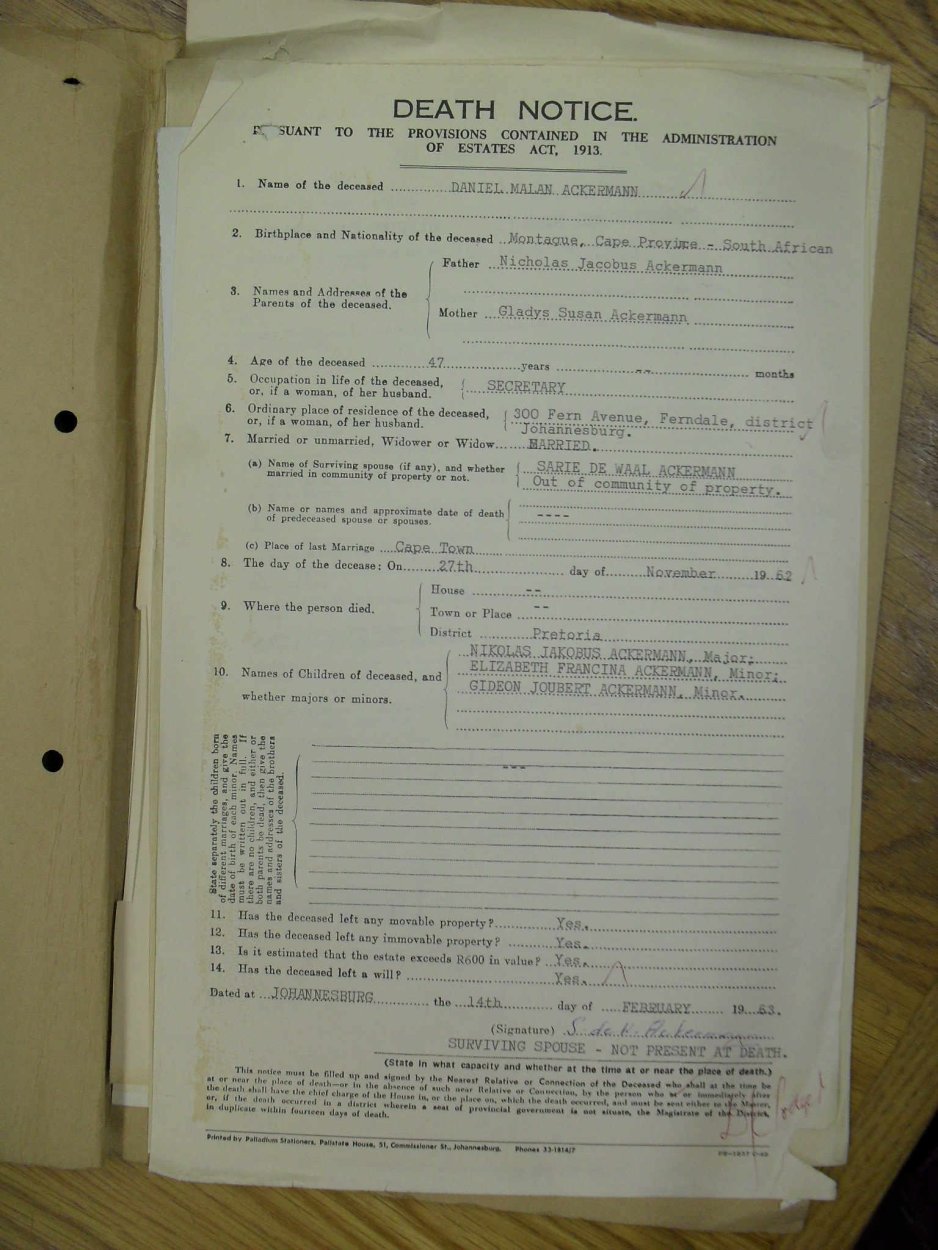 DEATH NOTICE.
PURSUANT TO THE PROVISIONS CONTAINED IN THE ADMINISTRATION
OF ESTATES ACT, 1913.
1. Name of the deceased DANIEL MALAN ACKERMANN
2. Birthplace and Nationality of the deceased Montague, Cape Province - South African
3. Names and Addresses of the Parents of the deceased.
Father Nicholas Jacobus Ackermann
Mother Gladys Susan Ackermann
4. Age of the deceased 47 years -- months
5. Occupation in life of the deceased, or, if a woman, of her husband. SECRETARY
6. Ordinary place of residence of the deceased, or, if a woman, of her husband. 300 Fern Avenue, Ferndale, district
Johannesburg.
7. Married or unmarried, Widower or Widow MARRIED.
(a) Name of Surviving spouse (if any), and whether married in community of property or not. SARIE DE WAAL ACKERMANN
Out of community of property.
(b) Name or names and approximate date of death of predeceased spouse or spouses. ----
(c) Place of last Marriage Cape Town
8. The day of the decease: On 27th day of November 1962
9. Where the person died.
House --
Town or Place --
District Pretoria
10. Names of Children of deceased, and
whether majors or minors.
NIKOLAS JAKOBUS ACKERMANN, Major;
ELIZABETH FRANCINA ACKERMANN, Minor;
GIDEON JOUBERT ACKERMANN, Minor.
State separately the children born
of different marriages, and give the
date of birth of each minor. Names
must be written out in full. If
there are no children, and either or
both parents be dead, then give the
names and addresses of the brothers
and sisters of the deceased.
---
11. Has the deceased left any movable property? Yes.
12. Has the deceased left any immovable property? Yes.
13. Is it estimated that the estate exceeds R600 in value? Yes.
14. Has the deceased left a will? Yes.
Dated at JOHANNESBURG the 14th day of FEBRUARY 1963.
(Signature) S. de W. Ackermann
SURVIVING SPOUSE - NOT PRESENT AT DEATH.
(State in what capacity and whether at the time at or near the place of death.)
This notice must be filled up and signed by the Nearest Relative or Connection of the Deceased who shall at the time be
at or near the place of death—or in the absence of such near Relative or Connection, by the person who at or immediately after
the death shall have the chief charge of the House in, or the place on, which the death occurred, and must be sent either to the Master,
or, if the death occurred in a district wherein a seat of provincial government is not situate, the Magistrate of the District,
in duplicate within fourteen days of death.
Printed by Palladium Stationers, Pallstate House, 51, Commissioner St., Johannesburg. Phones 33-1814/7